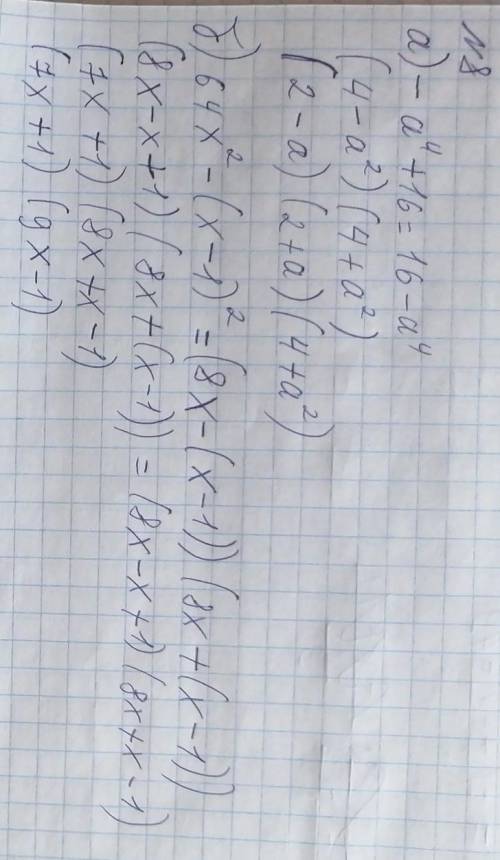 №8
а) -a⁴+16=16-a⁴
(4-a²)(4+a²)
(2-a)(2+a)(4+a²)
б) 64x²-(x-1)²=(8x-(x-1))(8x+(x-1))
(8x-x+1)(8x+(x-1))=(8x-x+1)(8x+x-1)
(7x+1)(8x+x-1)
(7x+1)(9x-1)